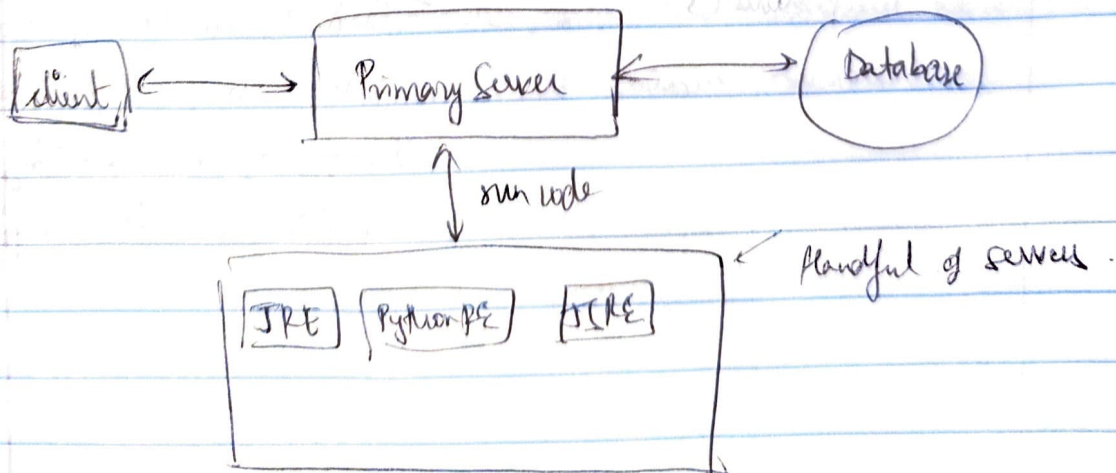 client
Primary Server
Database
run code
Handful of servers.
JRE
PythonRE